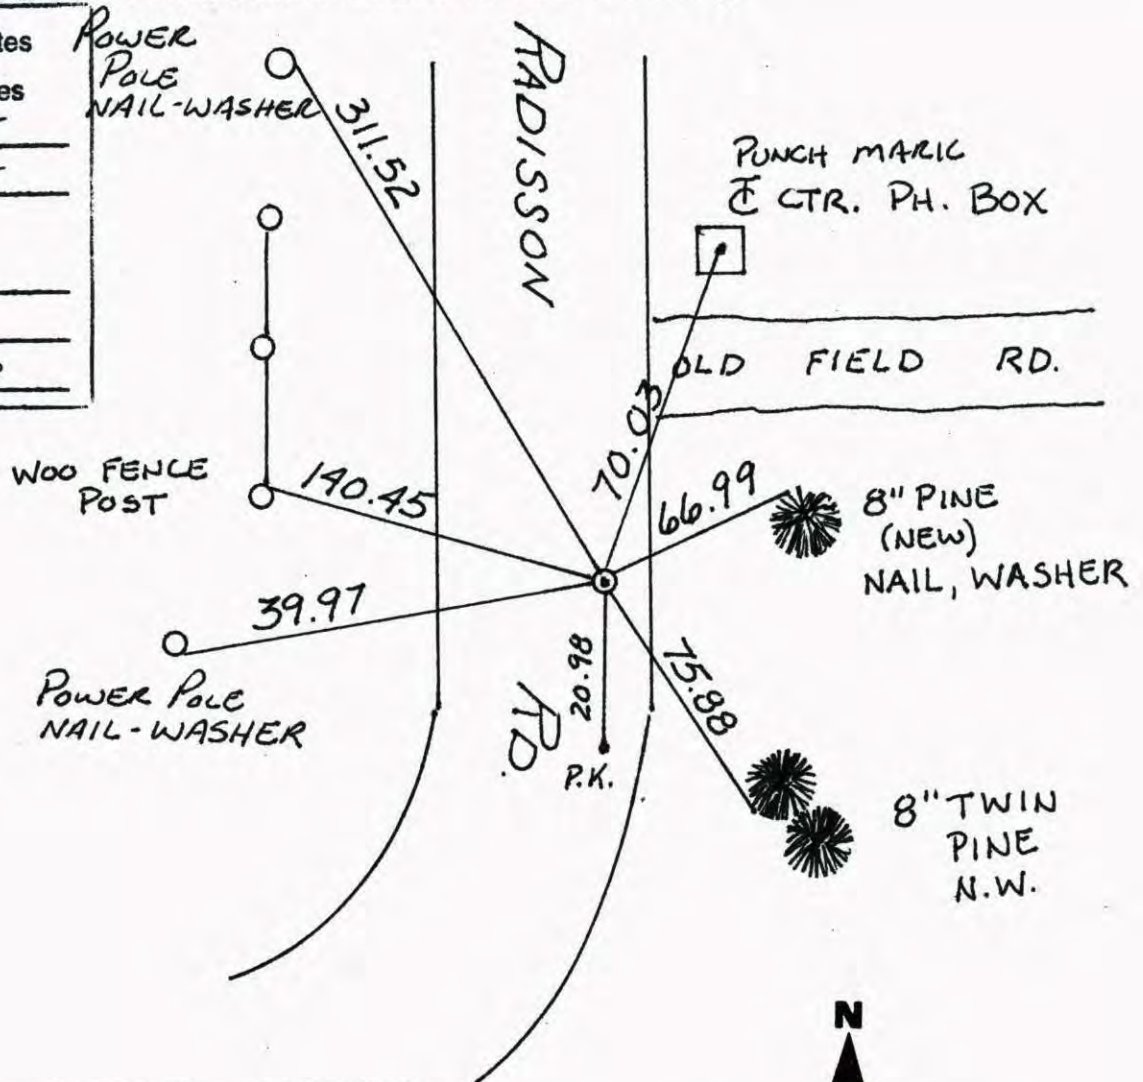 tes
es
POWER
POLE
NAIL-WASHER
311.52
RADISSON
PUNCH MARK
℄ CTR. PH. BOX
OLD FIELD RD.
70.03
WOO FENCE
POST
140.45
66.99
8" PINE
(NEW)
NAIL, WASHER
39.97
POWER POLE
NAIL-WASHER
20.98
RD.
P.K.
75.88
8" TWIN
PINE
N.W.
N